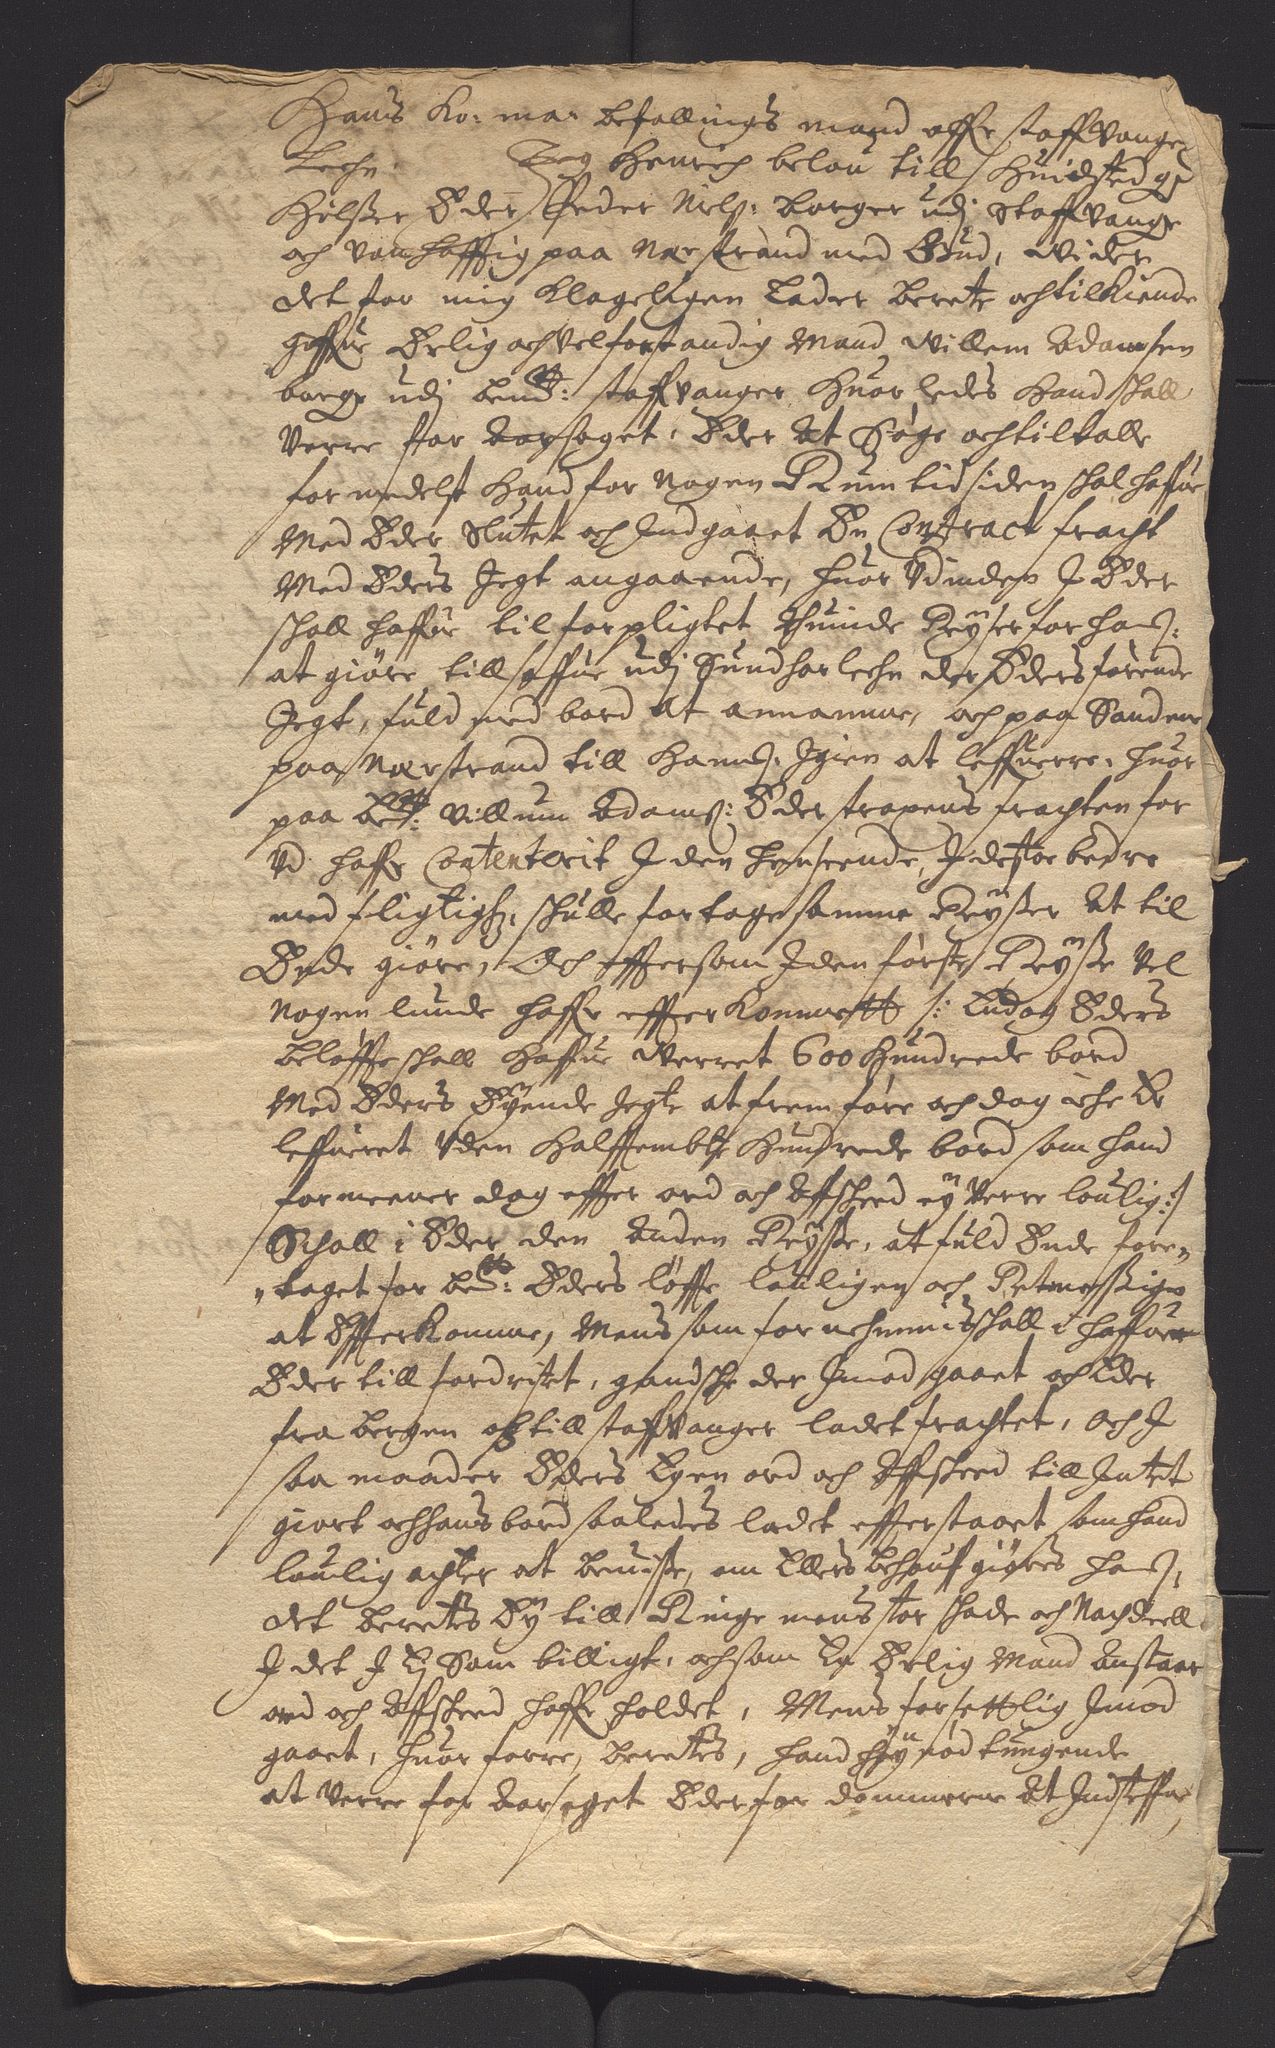 Hans Ko: ma: befallings mand offr Staffvanger
Lehn. Jeg Henrich belou till Huidsted g
Hilsser Eder Peder Niels: borger udj Staffvanger
och vonhafftig paa Nerstrand med Gud, wider
det for mig klageligen Lader berete och tilkiende
giffue Erlig och velforstandig Mand Willem Adamsen
borger udj bemt: Staffvanger huorledes Hand shall
verre for aarsaget, Eder at Søge och tiltalle
formedelst hand for nogen Rum tid siden shal haffue
Med Eder Slutet och Indgaaet En Contract fracht
Med Eders Jegt angaaende, huor Udinden I Eder
shall haffue tilforpligtet thuinde Reyser for hans:
at giøre till Saffue udj Sundhorlehn der Eders førende
Jegt, fuld med bord at annamme, och paa Sanden
paa Nerstrand till hannem Igien at leffuerre, huor
paa bemt: Villum Adams: Eder strapens frachten for
Ud haffr Contenterit I den henseende, I destoe bedre
med fligtighed, shulle fortage samme Reysser at til
Ende giøre, Och effter som I den første Reysse vel
nogenlunde haffr effterkommett /: Endog Eders
beløffte shall haffue werret 600 hundrede bord
Med Eders Eyende Jegt at fremføre och dog iche Er
leffueret uden halffembte hundrede bord som hand
formeener dog effter ord och Affsheed ey verre loulig :/
Schall i Eder den anden Reysse, at fuld Ende fore=
=taget for bemt: Eders løffte louligen och Retmessigen
at Effterkomme, Mens som fornehmmis shall i haffue
Eder till fordristet, gandshe der Imod gaaet och Eder
fra bergen och till Staffvanger ladet frachtet, Och I
saa maader Eders Egen ord och Affsheed till Intet
giort och hans bord saaledes ladet effterstaaet som hand
loulig achter at beuisse, om Ellers behouf giøres hans,
det beretes Ey till Ringe mens stor shade och Nachdeell
I det I Ej Som billigt, och som En Erlig Mand anstaar
ord och Affsheed haffr holdet, Mens forsettlig Imod
gaaet, huor forre, beretes, hand høynødtungende
at verre for aarsaget Eder for dommerne at Indsteffne